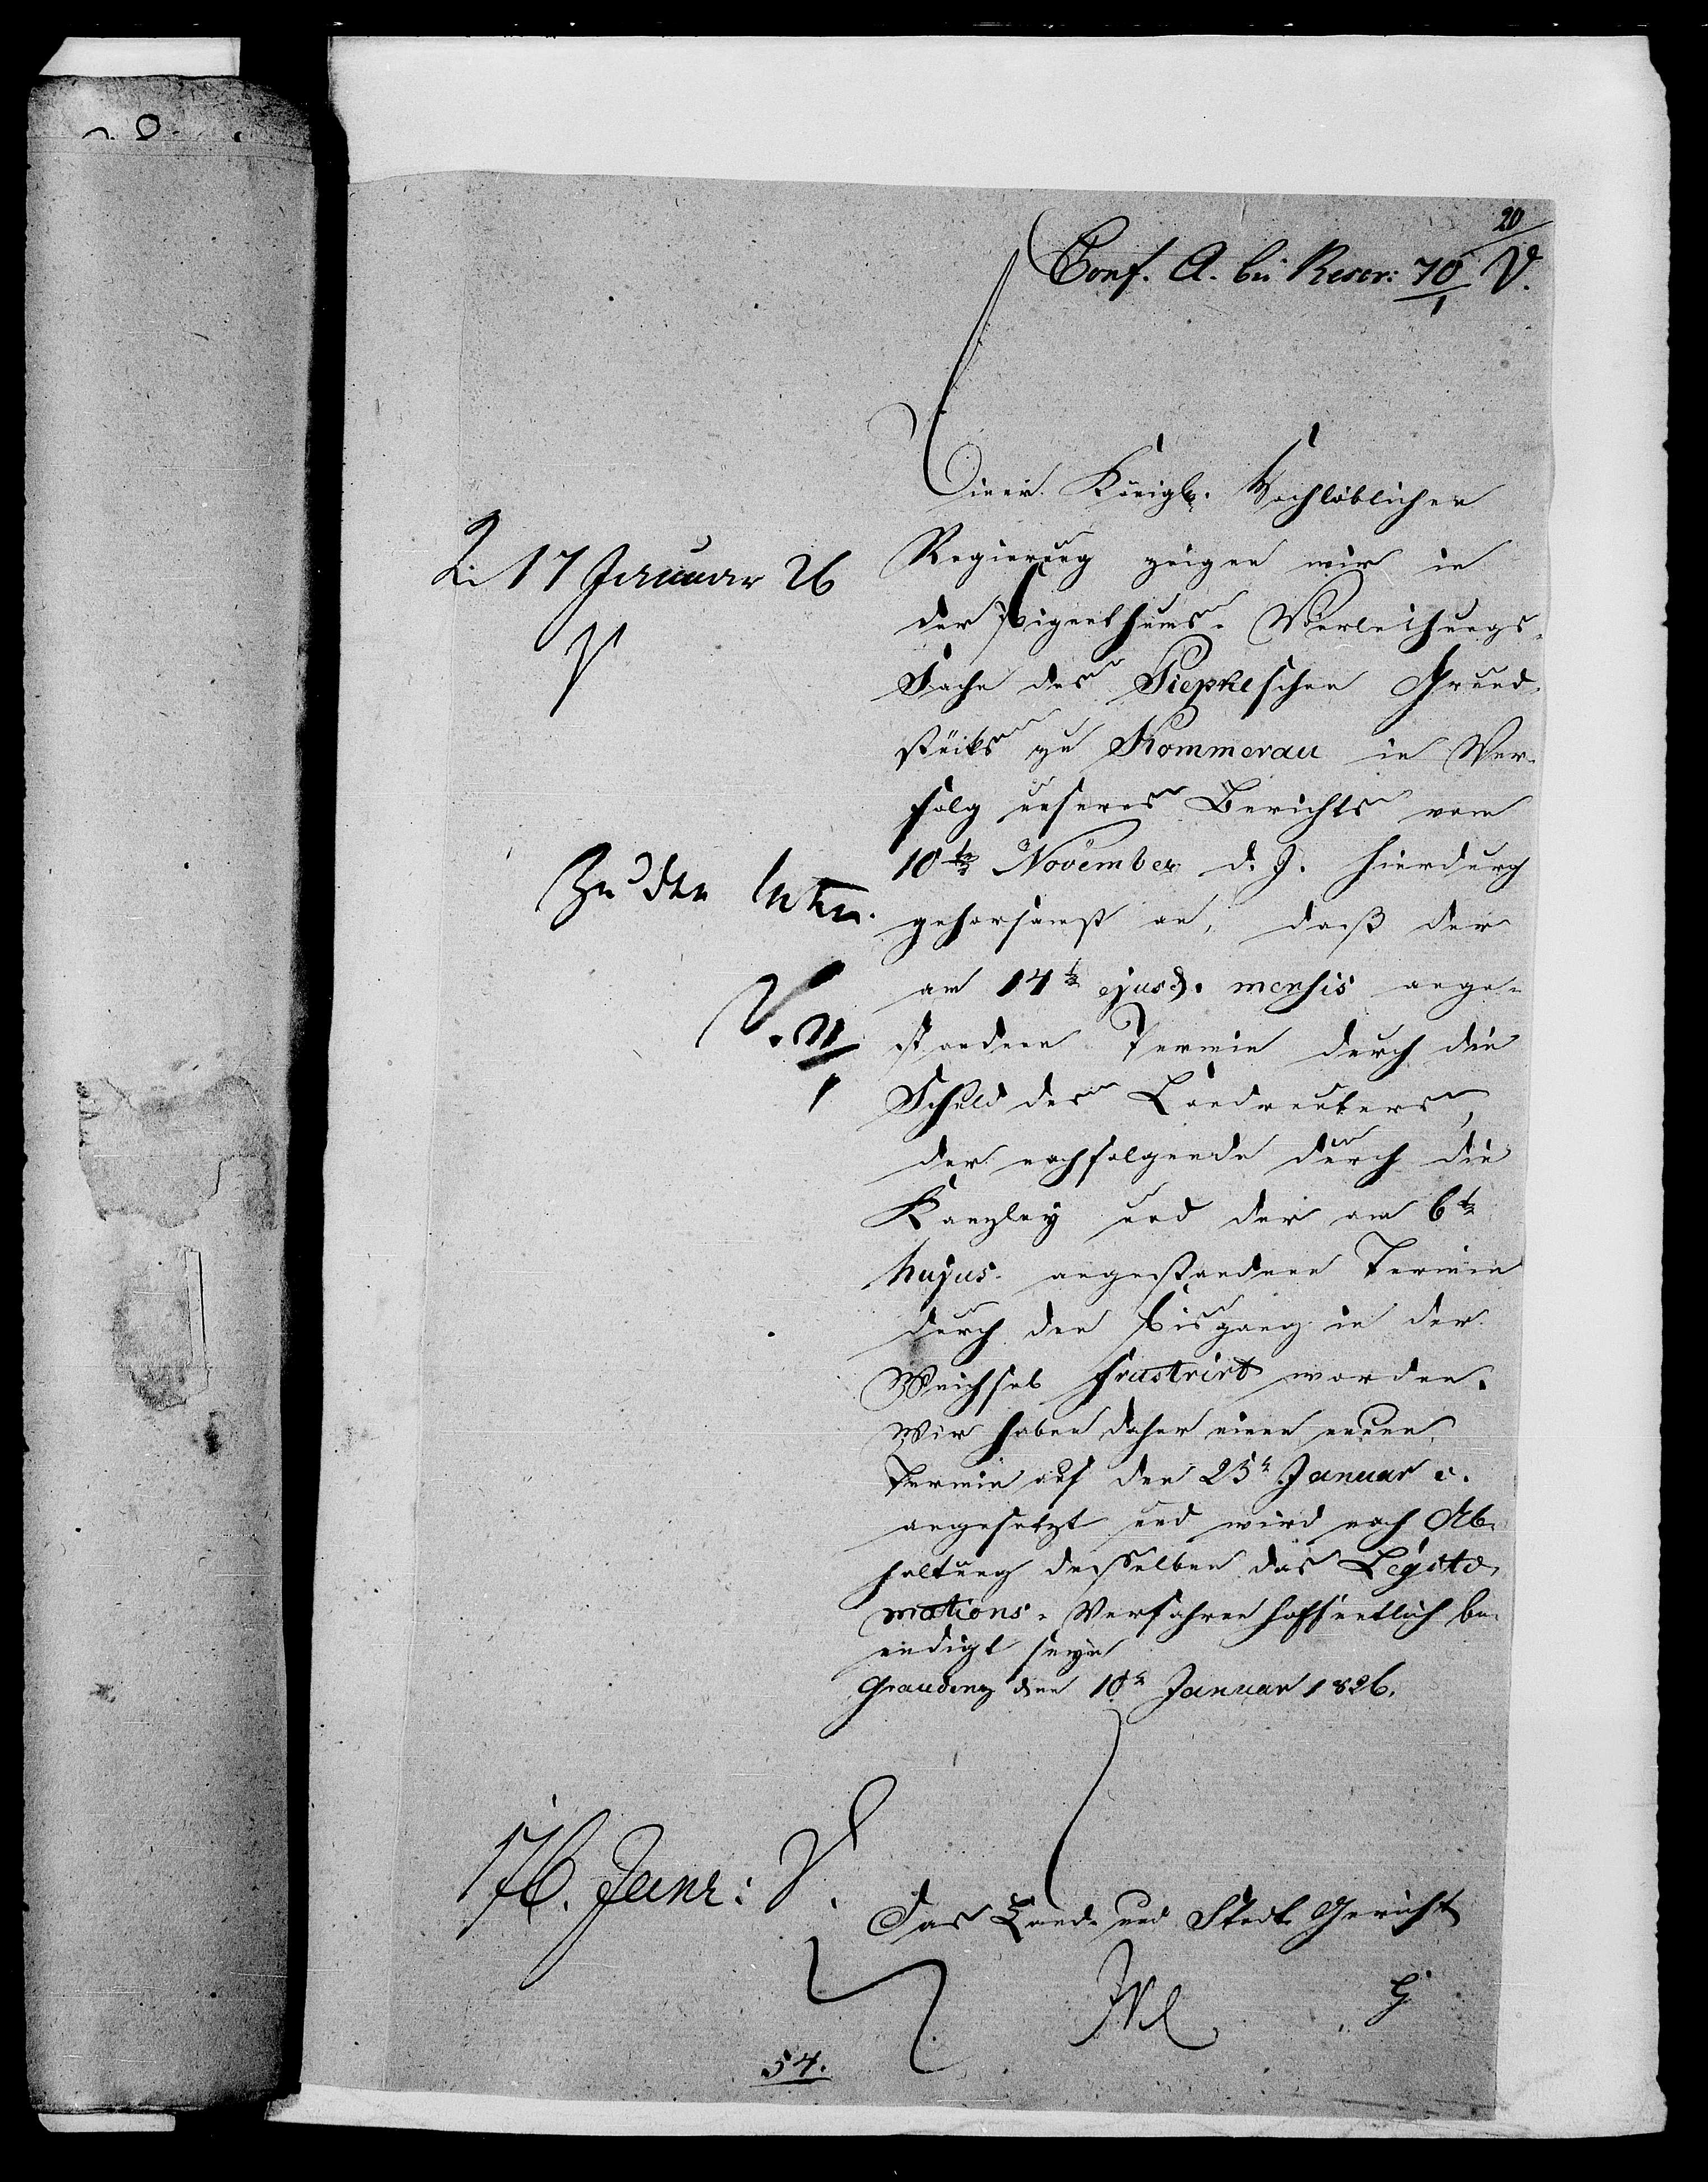 20
Conf. A. bei Rescr: 70/1 V.
Einer Königl. Hochlöblichen
Regierung zeigen wir in
der Eigenthums-Verleihungs-
Sache des Piepkeschen Grund-
stücks zu Kommerau in Ver-
folg unseres Berichts vom
10ten November d. J. hierdurch
gehorsamst an, daß der
am 14ten ejusd. mensis ange-
standene Termin durch die
Schuld des Landreuters,
der nachfolgende durch die
Kanzley und der am 6ten
hujus angestandene Termin
durch den Eisgang in der
Weichsel frustrirt worden.
Wir haben daher einen neuen
Termin auf den 25n Januar c.
angesetzt und wird nach Ab-
haltung desselben das Legiti-
mations-Verfahren hoffentlich be-
endigt seyn
Graudenz den 10n Januar 1826.
Das Land- und Stadt-Gericht
17 Januar 26
V
Zu den Akten.
V. 21/1
Janr: V.
54.